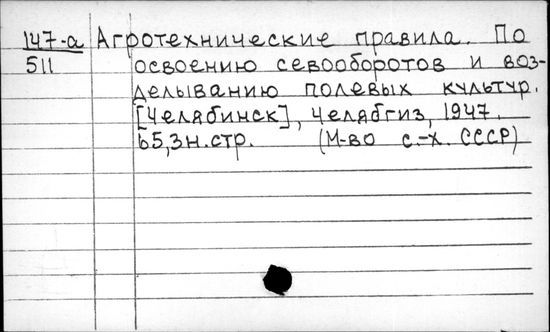 147-а Агротехнические правила. По
511 освоению севооборотов и воз-
делыванию полевых культур.
[Челябинск], Челябгиз, 1947.
65,3н.стр. (М-во с.-х. СССР)